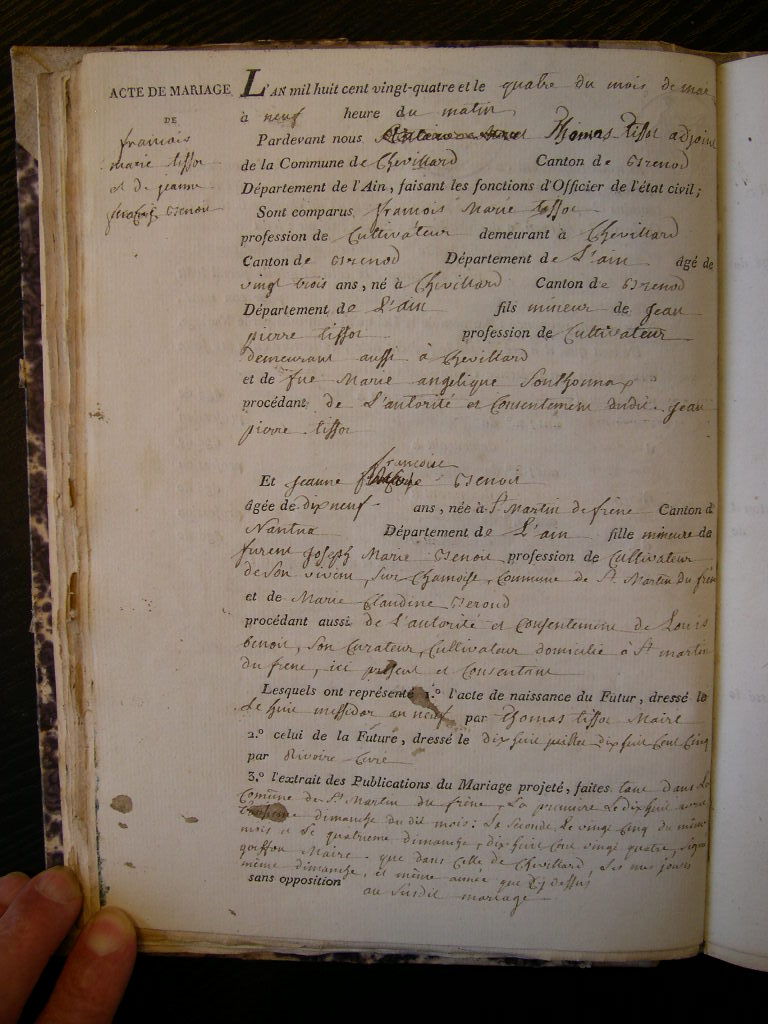 ACTE DE MARIAGE
DE
francois
marie tissot
et de jeanne
Benoit
L'AN mil huit cent vingt-quatre et le quatre du mois de mai
à neuf heure du matin
Pardevant nous Thomas tissot adjoint
de la Commune de Chevillard Canton de Brenod
Département de l'Ain, faisant les fonctions d'Officier de l'état civil;
Sont comparus francois Marie tissot
profession de Cultivateur demeurant à Chevillard
Canton de Brenod Département de L'ain âgé de
vingt trois ans, né à Chevillard Canton de Brenod
Département de L'ain fils mineur de jean
pierre tissot profession de Cultivateur
demeurant aussi à Chevillard
et de fue Marie angelique Sonthonnax
procédant de L'autorité et Consentement dudit jean
pierre tissot
francoise
Et jeanne Benoit
âgée de dix neuf ans, née à St Martin de frene Canton d
Nantua Département de L'ain fille mineure de
furent joseph Marie Benoit profession de Cultivateur
de son vivent, sur Chamoise, Commune de St. Martin du frene
et de Marie Claudine Beroud
procédant aussi de L'autorité et Consentement de Louis
benoit, son Curateur, Cultivateur domicilié à St martin
du frene, ici présent et Consentant
Lesquels ont représenté 1.° l'acte de naissance du Futur, dressé le
Le huit messidor an neuf par thomas tissot Maire
2.° celui de la Future, dressé le dix huit juillet dix huit Cent Cinq
par Rivoire Curé
3.° l'extrait des Publications du Mariage projeté, faites tant dans La
Comune de St Martin du frene, La premiere Le dix huit avril
troisieme dimanche du dit mois: La Seconde Le vingt Cinq du même
mois et Le quatrieme dimanche, dix huit Cent vingt quatre, signé
goiffon Maire. que dans Celle de Chevillard, Les mes jours
même dimanche, et même année que Cy dessus
sans opposition au Susdit mariage